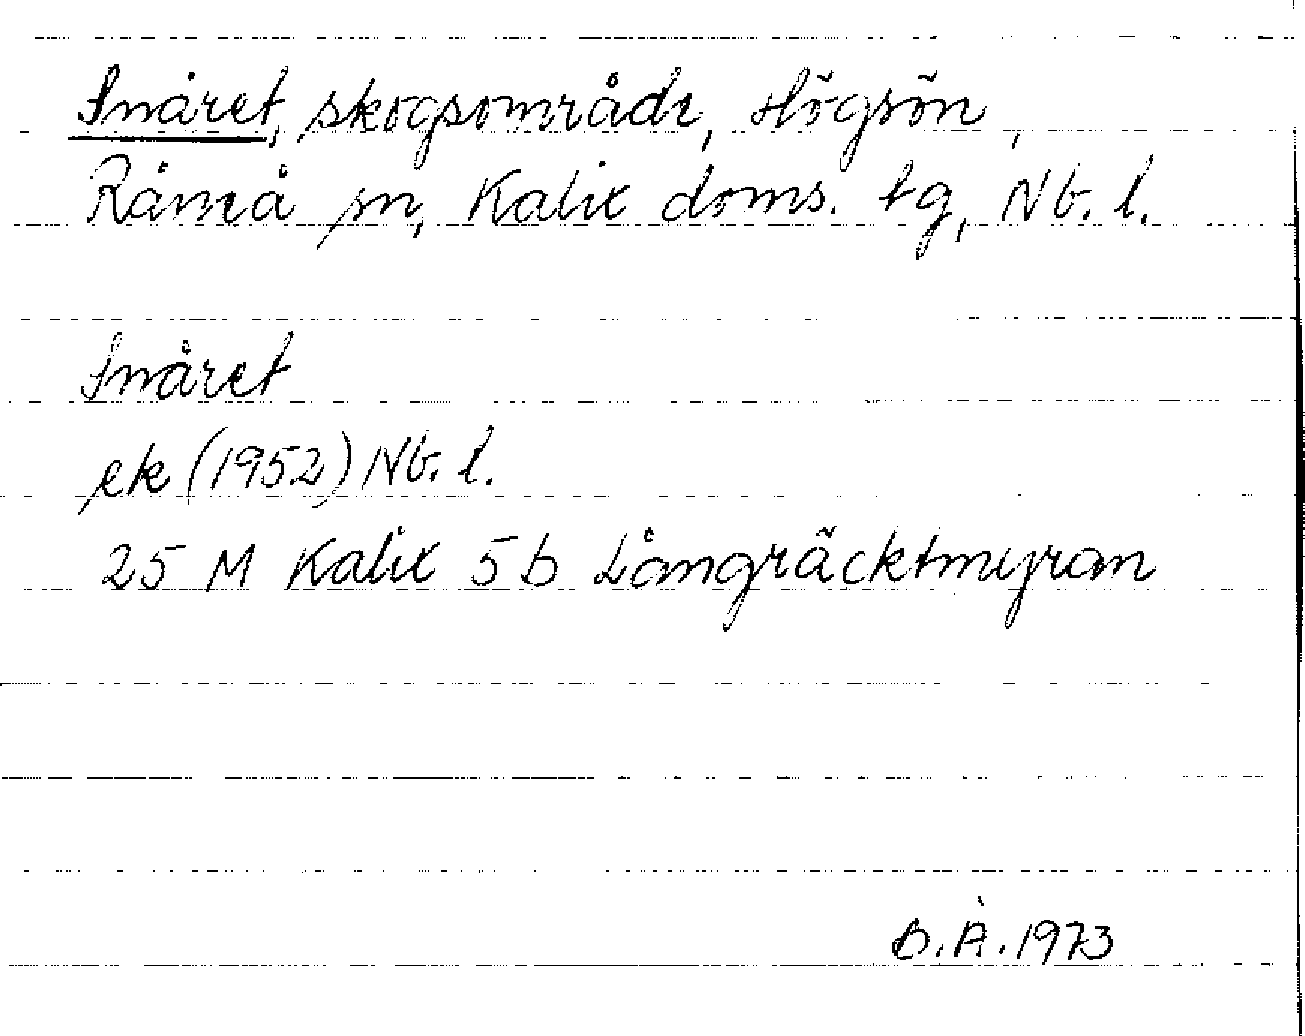 Snåret, skogsområde, Högsön,
Råneå sn, Kalix doms. tg, Nb. l.
Snåret
ek (1952) Nb. l.
25 M Kalix 5b Långräcktmyran
B.Å. 1973